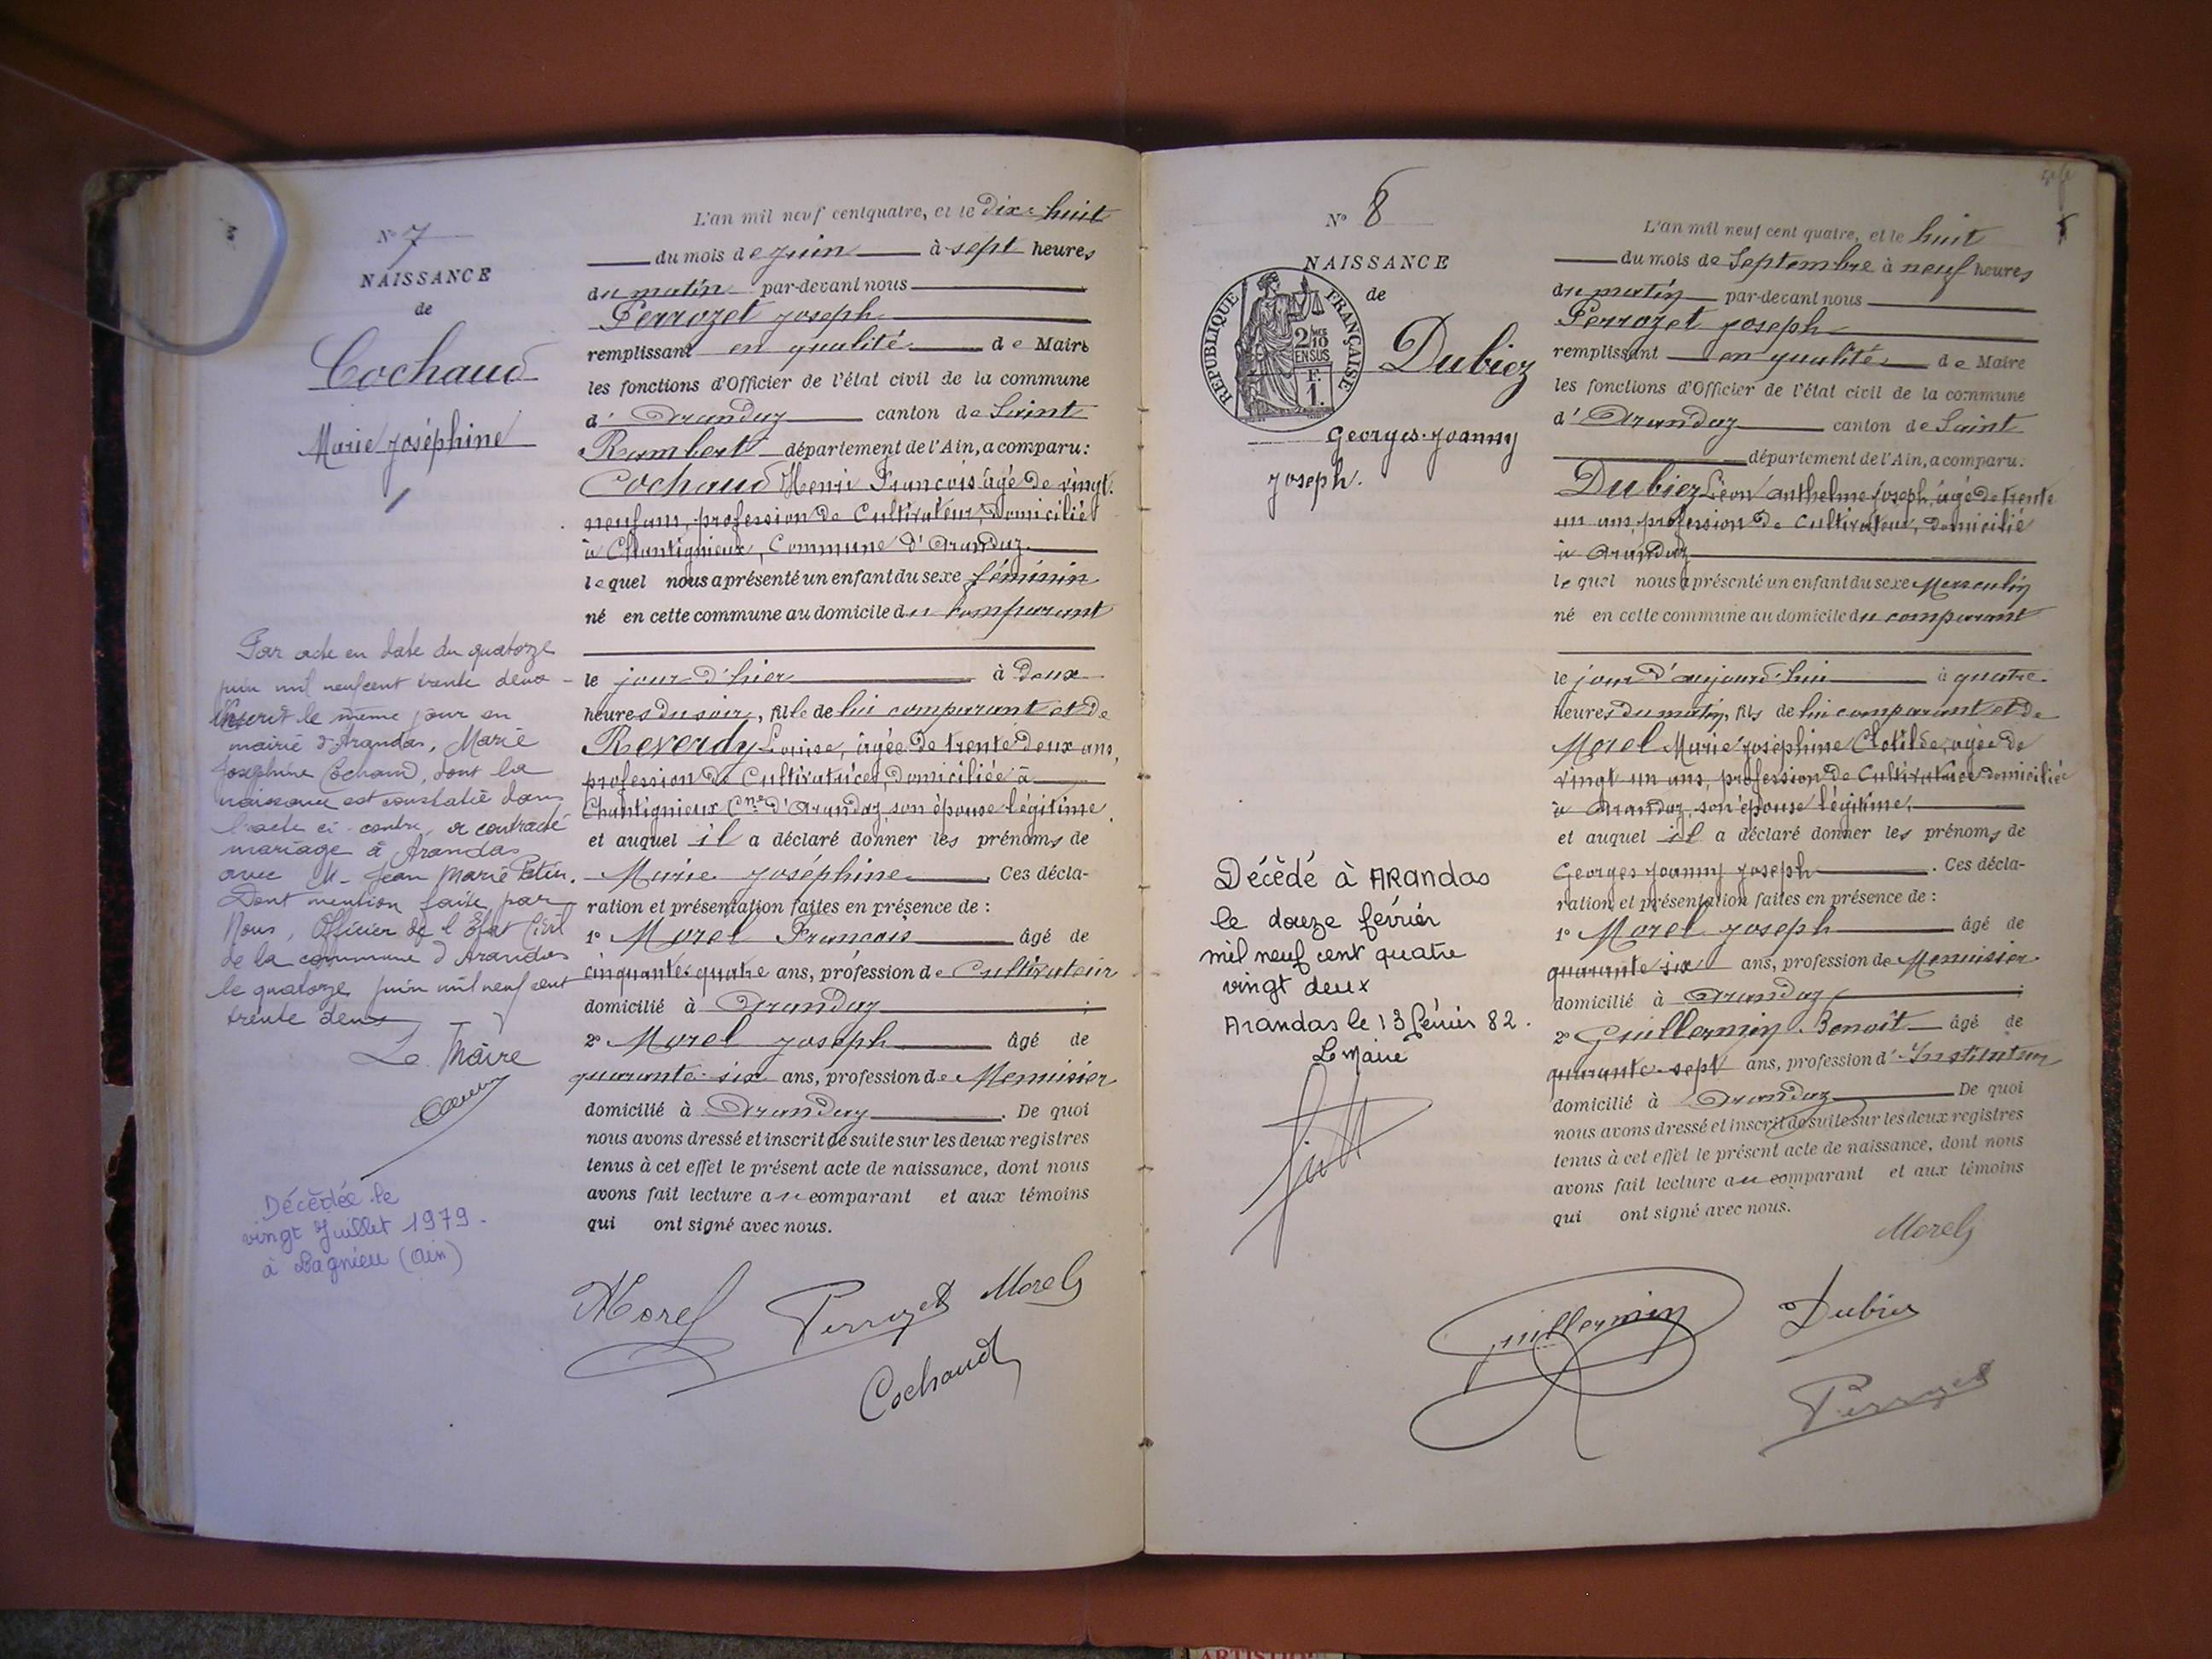 N° 7
NAISSANCE
de
Cochaud
Marie Joséphine
Par acte en date du quatorze
juin mil neuf cent trente deux
inscrit le même jour en
mairie d'Arandas, Marie
Joséphine Cochaud, dont la
naissance est constatée dans
l'acte ci-contre, a contracté
mariage à Arandas
avec M. Jean Marie Patin.
Dont mention faite par
Nous, Officier de l'État Civil
de la commune d'Arandas
le quatorze juin mil neuf cent
trente deux
Le Maire
Décédée le
vingt Juillet 1979.
à Lagnieu (Ain)
L'an mil neuf cent quatre, et le Dix-huit
du mois de juin à sept heures
du matin par-devant nous
Perrozet Joseph
remplissant en qualité de Maire
les fonctions d'Officier de l'état civil de la commune
d'Arandaz canton de Saint
Rambert département de l'Ain, a comparu:
Cochaud Henri François âgé de vingt-
neuf ans, profession de Cultivateur, domicilié
à Chantignieux, Commune d'Arandaz.
lequel nous a présenté un enfant du sexe féminin
né en cette commune au domicile du comparant
le jour d'hier à deux
heures du soir, fille de lui comparant et de
Reverdy Louise, âgée de trente deux ans,
profession de Cultivatrice, domiciliée à
Chantignieux Cne d'Arandaz, son épouse légitime
et auquel il a déclaré donner les prénoms de
Marie Joséphine. Ces décla-
ration et présentation faites en présence de :
1° Morel François âgé de
cinquante-quatre ans, profession de Cultivateur
domicilié à Arandaz ;
2° Morel Joseph âgé de
quarante-six ans, profession de Menuisier
domicilié à Arandaz. De quoi
nous avons dressé et inscrit de suite sur les deux registres
tenus à cet effet le présent acte de naissance, dont nous
avons fait lecture au comparant et aux témoins
qui ont signé avec nous.
Morel Perrozet Morel
Cochaud
N° 8
NAISSANCE
de
REPUBLIQUE FRANÇAISE
2/10 EN SUS
F. 1.
Dubiez
Georges-Joanny
Joseph.
Décédé à ARandas
le douze février
mil neuf cent quatre
vingt deux
Arandas le 13 février 82.
Le Maire
L'an mil neuf cent quatre, et le huit
du mois de Septembre à neuf heures
du matin par-devant nous
Perrozet Joseph
remplissant en qualité de Maire
les fonctions d'Officier de l'état civil de la commune
d'Arandaz canton de Saint
département de l'Ain, a comparu.
Dubiez Léon Anthelme Joseph, âgé de trente
un ans, profession de Cultivateur, domicilié
à Arandaz
lequel nous a présenté un enfant du sexe Masculin
né en cette commune au domicile du comparant
le jour d'aujourd'hui à quatre
heures du matin, fils de lui comparant et de
Morel Marie Joséphine Clotilde, âgée de
vingt un ans, profession de Cultivatrice domiciliée
à Arandaz, son épouse légitime,
et auquel il a déclaré donner les prénoms de
Georges Joanny Joseph. Ces décla-
ration et présentation faites en présence de :
1° Morel Joseph âgé de
quarante-six ans, profession de Menuisier
domicilié à Arandaz ;
2° Guillermin Benoît âgé de
quarante-sept ans, profession d'Instituteur
domicilié à Arandaz De quoi
nous avons dressé et inscrit de suite sur les deux registres
tenus à cet effet le présent acte de naissance, dont nous
avons fait lecture au comparant et aux témoins
qui ont signé avec nous.
Morel
Guillermin Dubiez
Perrozet